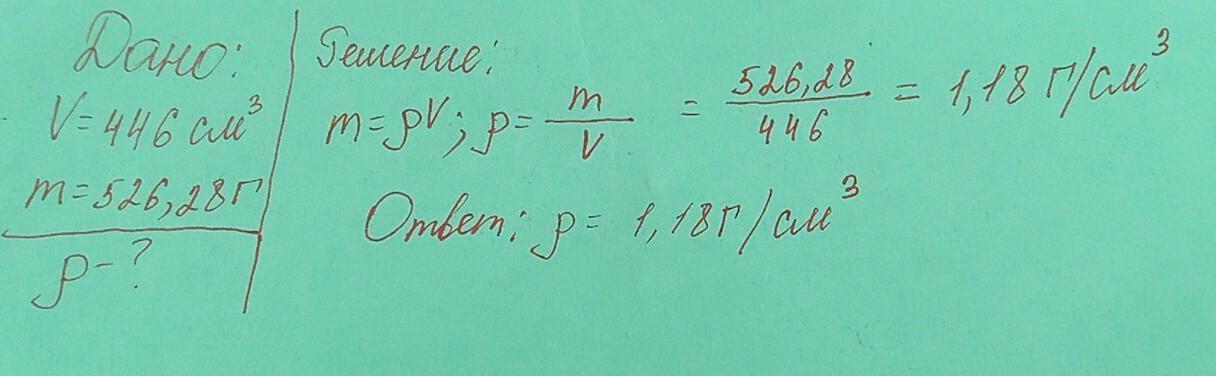 Дано:
V=446 см³
m=526,28г
ρ-?
Решение:
m=ρV; ρ= m/V = 526,28/446 = 1,18 г/см³
Ответ: ρ= 1,18г/см³